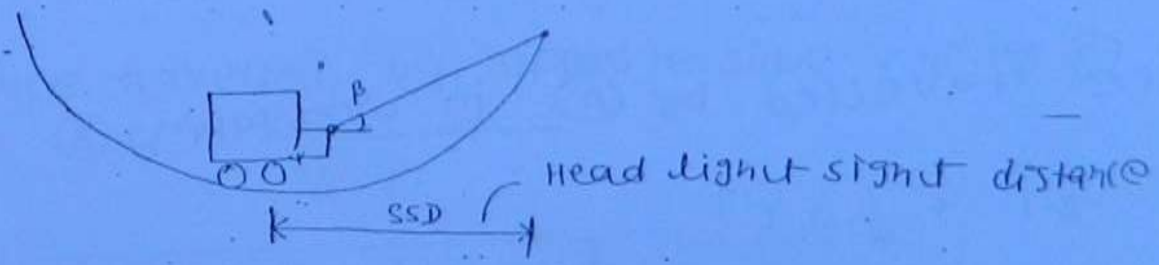 β
Head light sight distance
SSD